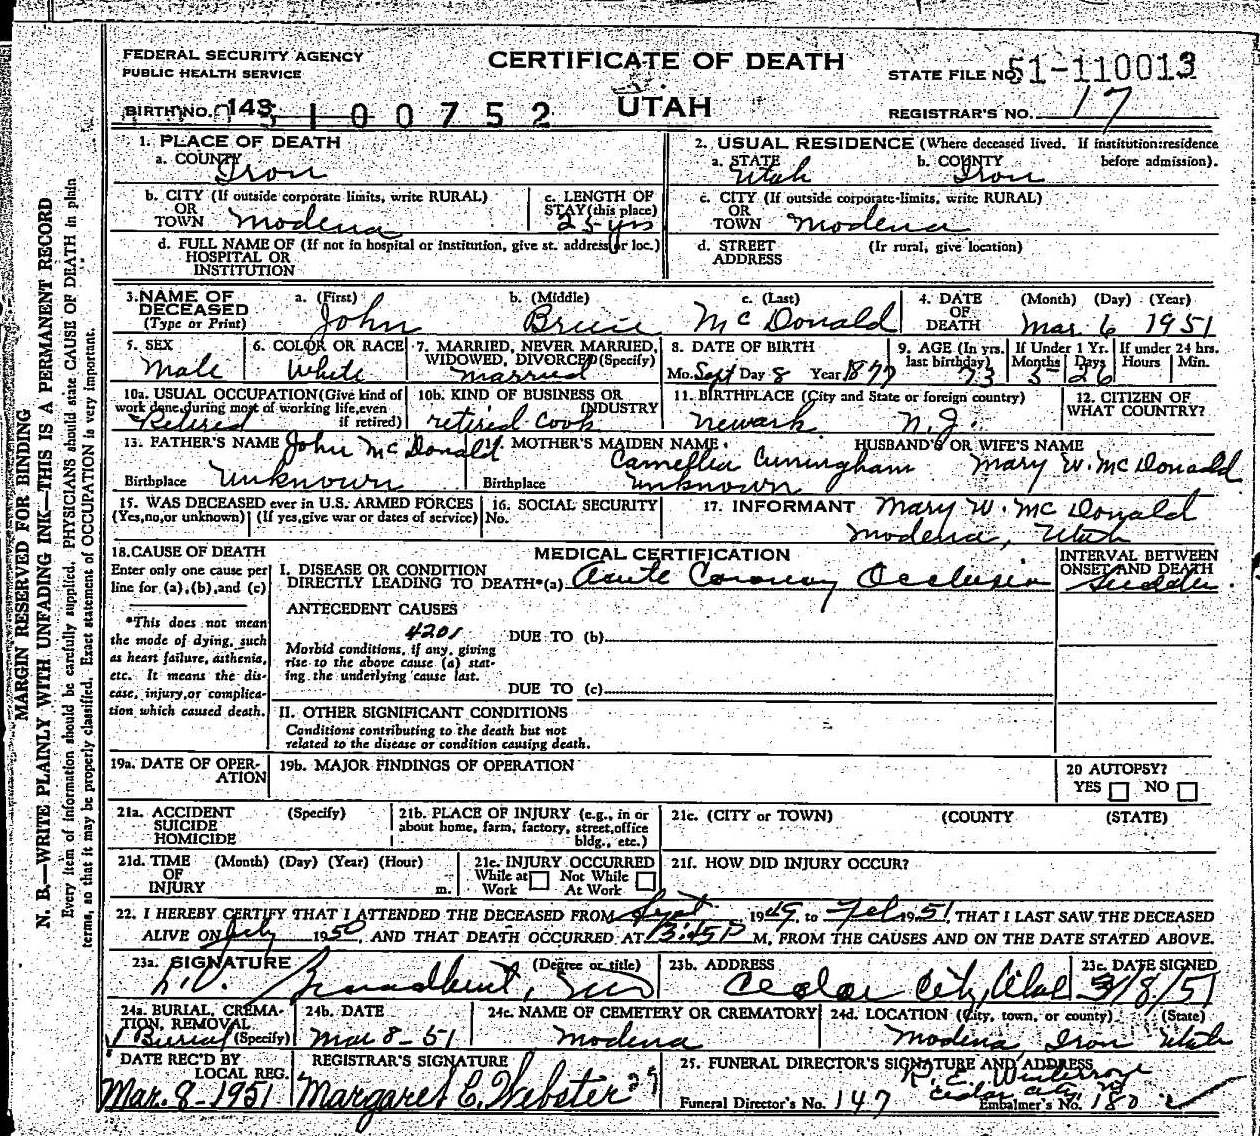 FEDERAL SECURITY AGENCY
PUBLIC HEALTH SERVICE
CERTIFICATE OF DEATH
STATE FILE NO. 51-110013
BIRTH NO. 143 100752
UTAH
REGISTRAR'S NO. 17
1. PLACE OF DEATH
a. COUNTY Iron
2. USUAL RESIDENCE (Where deceased lived. If institution:residence before admission).
a. STATE Utah b. COUNTY Iron
b. CITY (If outside corporate limits, write RURAL)
OR
TOWN Modena
c. LENGTH OF
STAY (this place)
25 yrs
c. CITY (If outside corporate limits, write RURAL)
OR
TOWN Modena
d. FULL NAME OF (If not in hospital or institution, give st. address or loc.)
HOSPITAL OR
INSTITUTION
d. STREET (If rural, give location)
ADDRESS
3. NAME OF
DECEASED
(Type or Print)
a. (First) John
b. (Middle)
c. (Last) McDonald
4. DATE
OF
DEATH
(Month) (Day) (Year)
Mar. 6 1951
5. SEX
Male
6. COLOR OR RACE
White
7. MARRIED, NEVER MARRIED,
WIDOWED, DIVORCED (Specify)
Married
8. DATE OF BIRTH
Mo. Sept Day 8 Year 1877
9. AGE (In yrs. last birthday) 73
If Under 1 Yr. Months 5 Days 26
If under 24 hrs. Hours Min.
10a. USUAL OCCUPATION (Give kind of
work done during most of working life, even
if retired)
Retired
10b. KIND OF BUSINESS OR
INDUSTRY
retired Cook
11. BIRTHPLACE (City and State or foreign country)
Newark N.J.
12. CITIZEN OF
WHAT COUNTRY?
13. FATHER'S NAME John McDonald
Birthplace Unknown
14. MOTHER'S MAIDEN NAME
Camellia Cuningham
Birthplace Unknown
HUSBAND'S OR WIFE'S NAME
Mary W. McDonald
15. WAS DECEASED ever in U.S. ARMED FORCES
(Yes,no,or unknown) (If yes,give war or dates of service)
16. SOCIAL SECURITY
No.
17. INFORMANT Mary W. McDonald
Modena, Utah
18. CAUSE OF DEATH
Enter only one cause per
line for (a), (b), and (c)
*This does not mean
the mode of dying, such
as heart failure, asthenia,
etc. It means the dis-
ease, injury, or complica-
tion which caused death.
MEDICAL CERTIFICATION
INTERVAL BETWEEN
ONSET AND DEATH
I. DISEASE OR CONDITION
DIRECTLY LEADING TO DEATH*(a) Acute Coronary Occlusion
Sudden
ANTECEDENT CAUSES
4201
DUE TO (b)
Morbid conditions, if any, giving
rise to the above cause (a) stat-
ing the underlying cause last.
DUE TO (c)
II. OTHER SIGNIFICANT CONDITIONS
Conditions contributing to the death but not
related to the disease or condition causing death.
19a. DATE OF OPER-
ATION
19b. MAJOR FINDINGS OF OPERATION
20 AUTOPSY?
YES NO
21a. ACCIDENT (Specify)
SUICIDE
HOMICIDE
21b. PLACE OF INJURY (e.g., in or
about home, farm, factory, street, office
bldg., etc.)
21c. (CITY or TOWN) (COUNTY) (STATE)
21d. TIME (Month) (Day) (Year) (Hour)
OF
INJURY m.
21e. INJURY OCCURRED
While at Work Not While At Work
21f. HOW DID INJURY OCCUR?
22. I HEREBY CERTIFY THAT I ATTENDED THE DECEASED FROM Sept 1949 to Feb 1951, THAT I LAST SAW THE DECEASED
ALIVE ON July 1950, AND THAT DEATH OCCURRED AT 3:45 P M, FROM THE CAUSES AND ON THE DATE STATED ABOVE.
23a. SIGNATURE (Degree or title)
23b. ADDRESS
Cedar City, Utah
23c. DATE SIGNED
3/8/51
24a. BURIAL, CREMA-
TION, REMOVAL
(Specify) Burial
24b. DATE
Mar 8-51
24c. NAME OF CEMETERY OR CREMATORY
Modena
24d. LOCATION (City, town, or county) (State)
Modena Iron Utah
DATE REC'D BY
LOCAL REG.
Mar. 8-1951
REGISTRAR'S SIGNATURE
Margaret C. Webster
25. FUNERAL DIRECTOR'S SIGNATURE AND ADDRESS
Cedar City
Funeral Director's No. 147 Embalmer's No. 180
MARGIN RESERVED FOR BINDING
N. B.—WRITE PLAINLY WITH UNFADING INK—THIS IS A PERMANENT RECORD
Every item of information should be carefully supplied. PHYSICIANS should state CAUSE OF DEATH in plain
terms, so that it may be properly classified. Exact statement of OCCUPATION is very important.